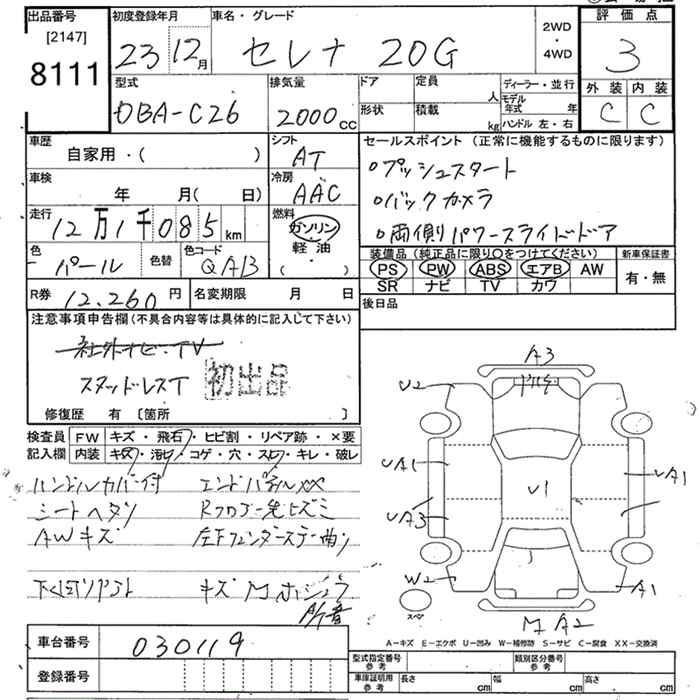 出品番号 初度登録年月 車名・グレード 評価点
[2147]
8111 23 12月 セレナ 20G 2WD・4WD 3
型式 排気量 ドア 定員 人 ディーラー・並行 外装 内装
DBA-C26 2000cc 形状 積載 kg モデル年式 年 C C
ハンドル 左・右
車歴 シフト セールスポイント(正常に機能するものに限ります)
自家用・( ) AT ○プッシュスタート
車検 冷房 ○バックカメラ
年 月(日) AAC ○両側パワースライドドア
走行 燃料
12万1千085km ガソリン・軽油・( )
色 色替 色コード 装備品(純正品に限り○をつけてください) 新車保証書
パール QAB PS PW ABS エアB AW 有・無
SR ナビ TV カワ
R券 12,260円 名変期限 月 日 後日品
注意事項申告欄(不具合内容等は具体的に記入して下さい)
社外ナビ・TV
スタッドレスT 初出品
修復歴 有 [箇所 ]
検査員 FW キズ・飛石・ヒビ割・リペア跡・×要
記入欄 内装 キズ・汚れ・コゲ・穴・スレ・キレ・破レ
ハンドルカバー付 エンドパネルXX
シートヘタリ
AWキズ
キズ
A3
U2
UA1
U1
UA1
UA3
W2
A1
スペア
A2
A-キズ E-エクボ U-凹み W-補修跡 S-サビ C-腐食 XX-交換済
車台番号 030119
登録番号
型式指定番号 参考 類別区分番号 参考
車庫証明用 参考 長さ cm 幅 cm 高さ cm